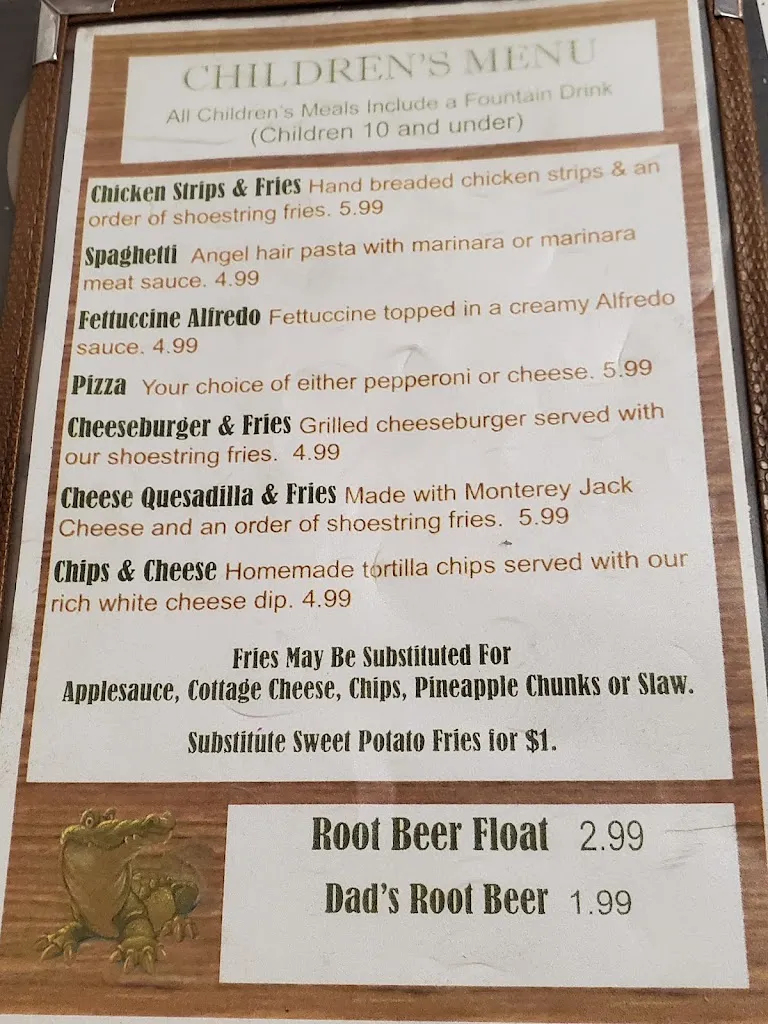 CHILDREN'S MENU
All Children's Meals Include a Fountain Drink
(Children 10 and under)
Chicken Strips & Fries Hand breaded chicken strips & an
order of shoestring fries. 5.99
Spaghetti Angel hair pasta with marinara or marinara
meat sauce. 4.99
Fettuccine Alfredo Fettuccine topped in a creamy Alfredo
sauce. 4.99
Pizza Your choice of either pepperoni or cheese. 5.99
Cheeseburger & Fries Grilled cheeseburger served with
our shoestring fries. 4.99
Cheese Quesadilla & Fries Made with Monterey Jack
Cheese and an order of shoestring fries. 5.99
Chips & Cheese Homemade tortilla chips served with our
rich white cheese dip. 4.99
Fries May Be Substituted For
Applesauce, Cottage Cheese, Chips, Pineapple Chunks or Slaw.
Substitute Sweet Potato Fries for $1.
Root Beer Float 2.99
Dad's Root Beer 1.99